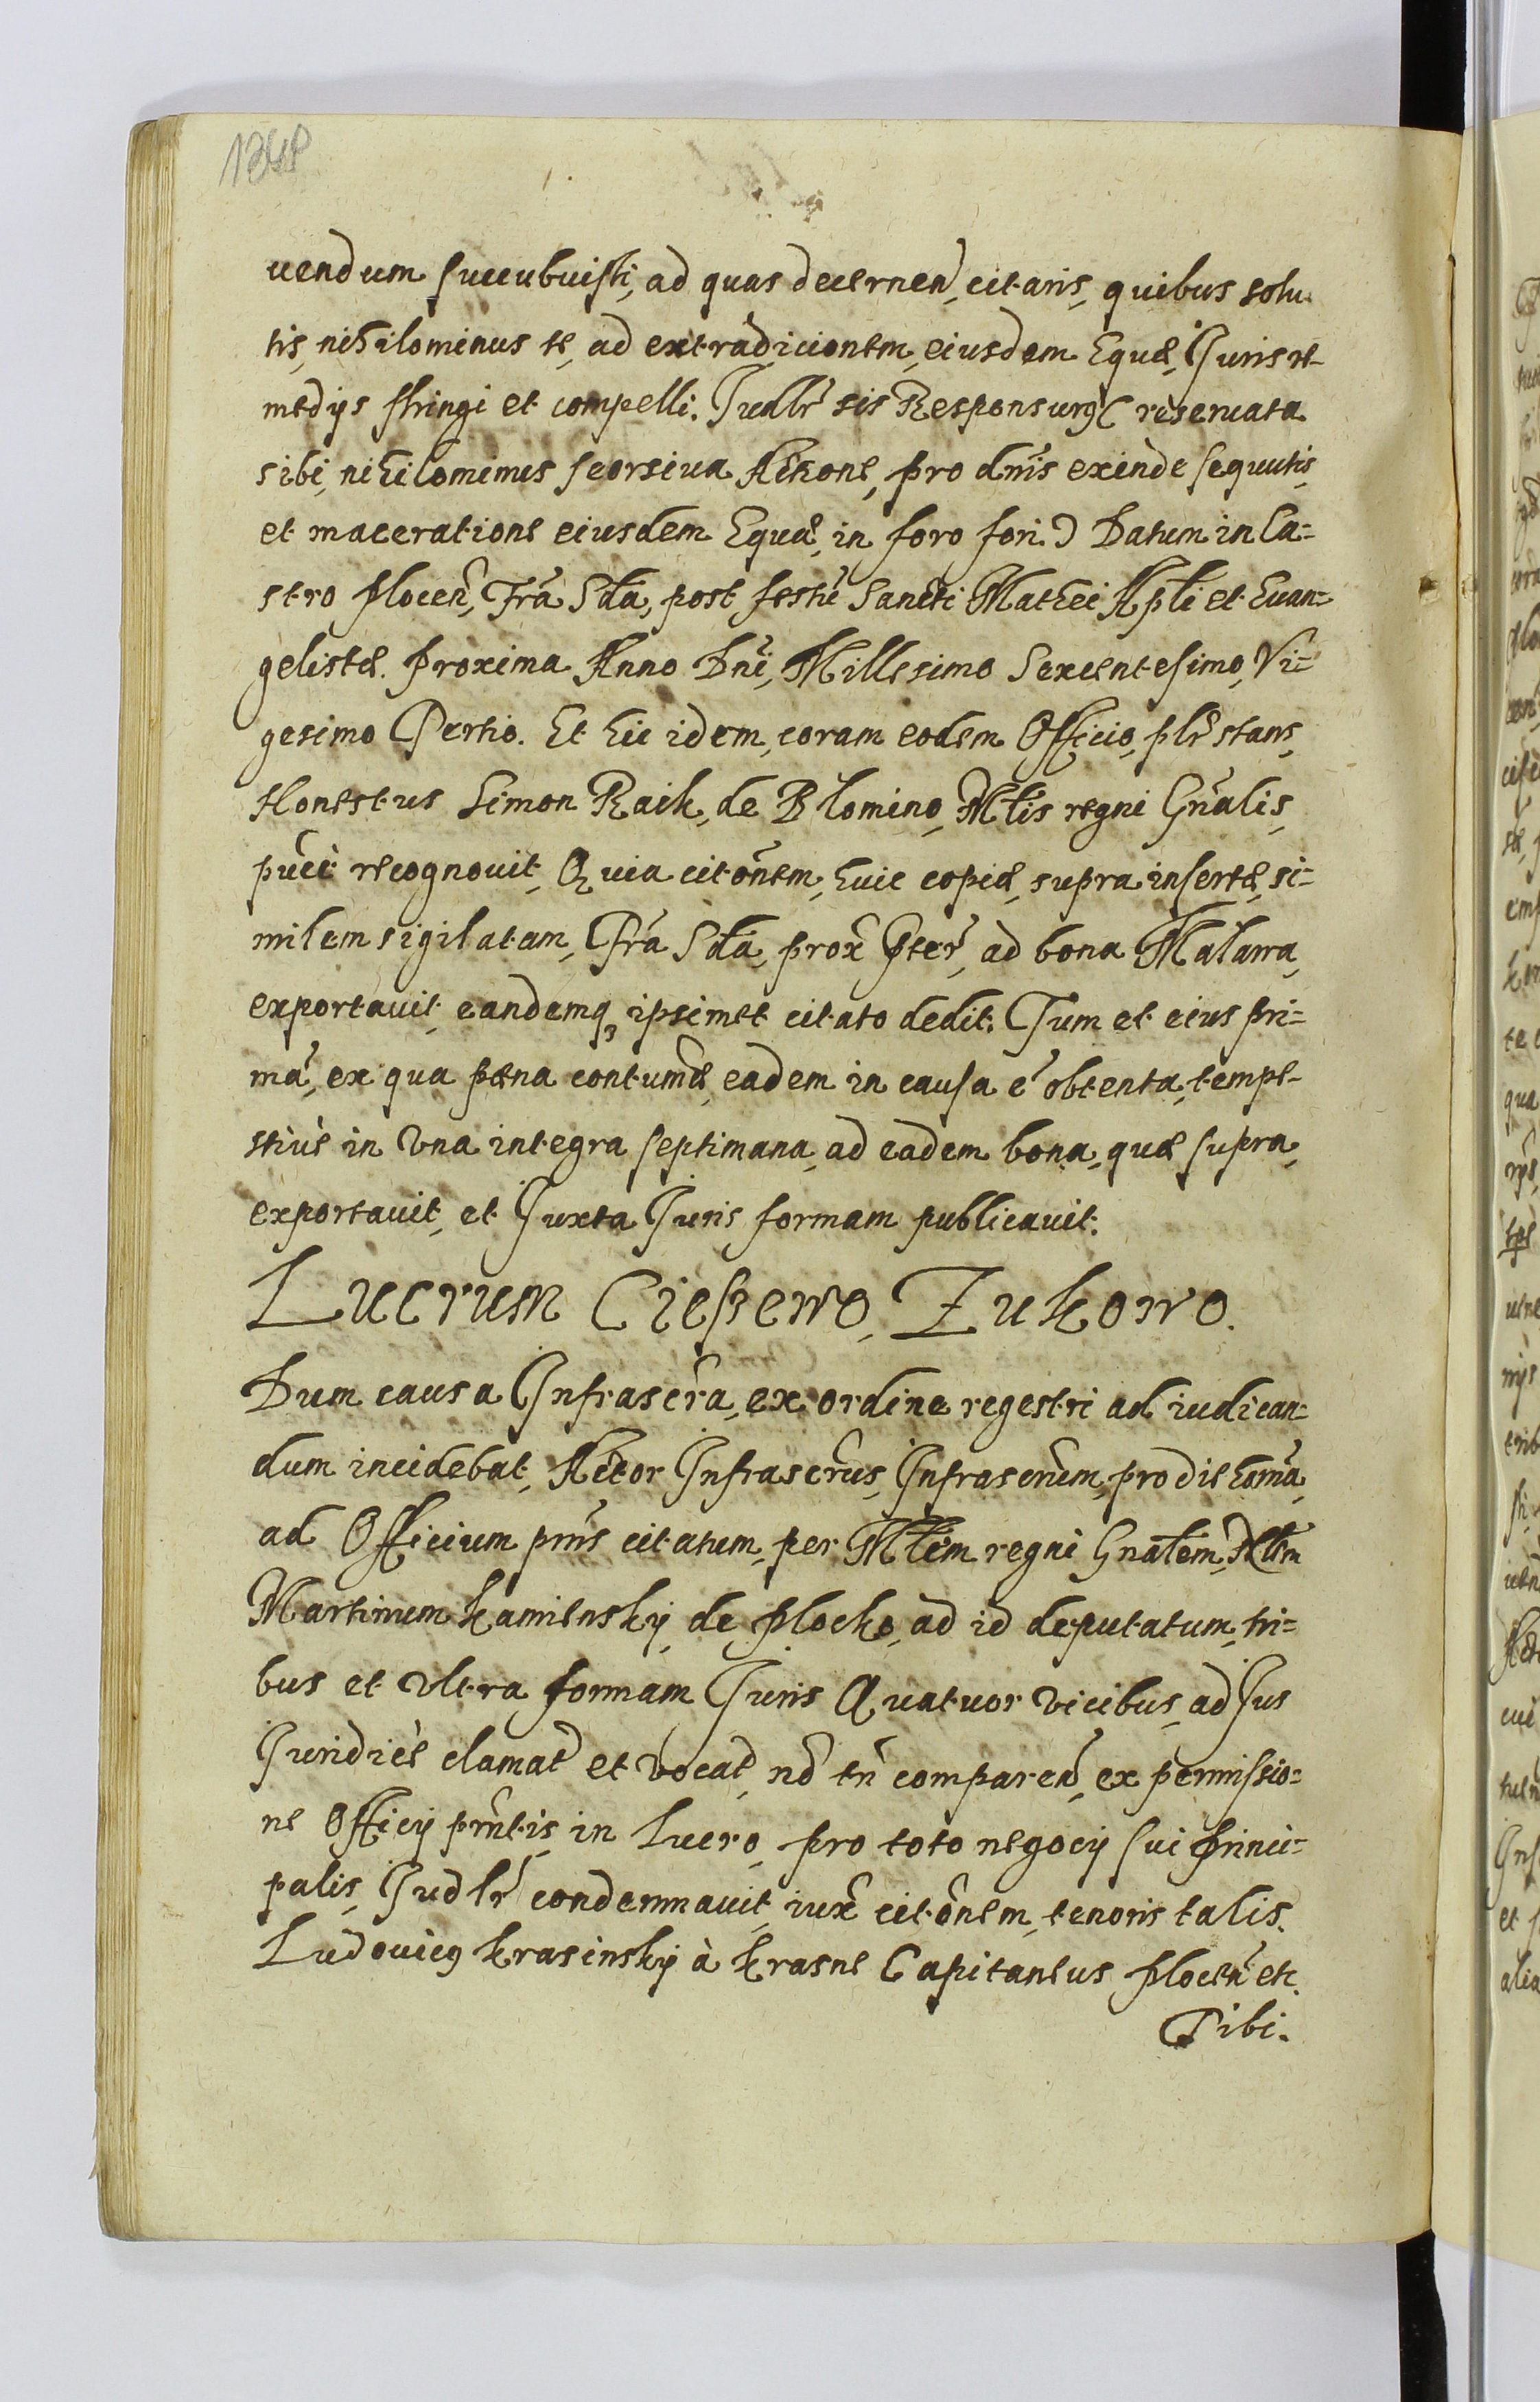 vendum succubuisti, ad quas decernen̄, citaris, quibus solu-
tis, nihilominus te, ad extradicionem, eiusdem Equæ, Juris re-
medijs stringi et compelli. Judlr̄ sis Responsurꝰ (reservata
sibi, nihilominus seorsiva Actione, pro dm̄nis exinde sequutis,
et maceratione eiusdem Equæ, in foro fori.) Datum in Ca=
stro Plocen̄, Fr̄a Sc̄da, post festū Sancti Mathei Apl̄i et Evan=
gelistæ. Proxima Anno Dn̄i, Millesimo Sexcentesimo, Vi=
gesimo Tertio. Et hic idem, coram eodem Officio, pl̄r stans,
Honestus Simon Raik, de Blomino, Ml̄is regni Gn̄alis,
pu͞cè recognovit, Quia cit͞onem, huic copiæ, supra insertæ, si=
milem sigilatam, Fr̄a Sd̄a, prox̄ p̄ter̄, ad bona
exportavit, eandemqꝫ ipsimet citato dedit. Tum et eius pri=
mā, ex qua pæna contumæ, eadem in causa ē obtenta, tempe-
stivè in una integra septimana, ad eadem bona, quæ supra,
exportavit, et Juxta Juris formam publicavit.
Lucrum Cieszewo, Zukowo.
Dum causa Infrascr̄a, ex ordine regestri ad iudican=
dum incidebat, Actor Infrascr̄us, Infrascrūm, pro die hōrna,
ad Officium pn̄s citatum, per Ml̄em regni Gnālem,
Martinum Kamiensky, de Plocko, ad id deputatum, tri=
bus et ultra formam Juris Quatuor vicibus, ad Jus
Juridicè clamat̄ et vocat̄, nō tn̄ comparen̄, ex permissio=
ne Officij pn̄tis, in Lucro, pro toto negocij sui princi=
palis, Judlr̄ condemnavit, iux̄ cit͞onem, tenoris talis.
Ludovicꝰ Krasinsky à Krasne Capitaneus Plocen̄ etc.
Tibi.